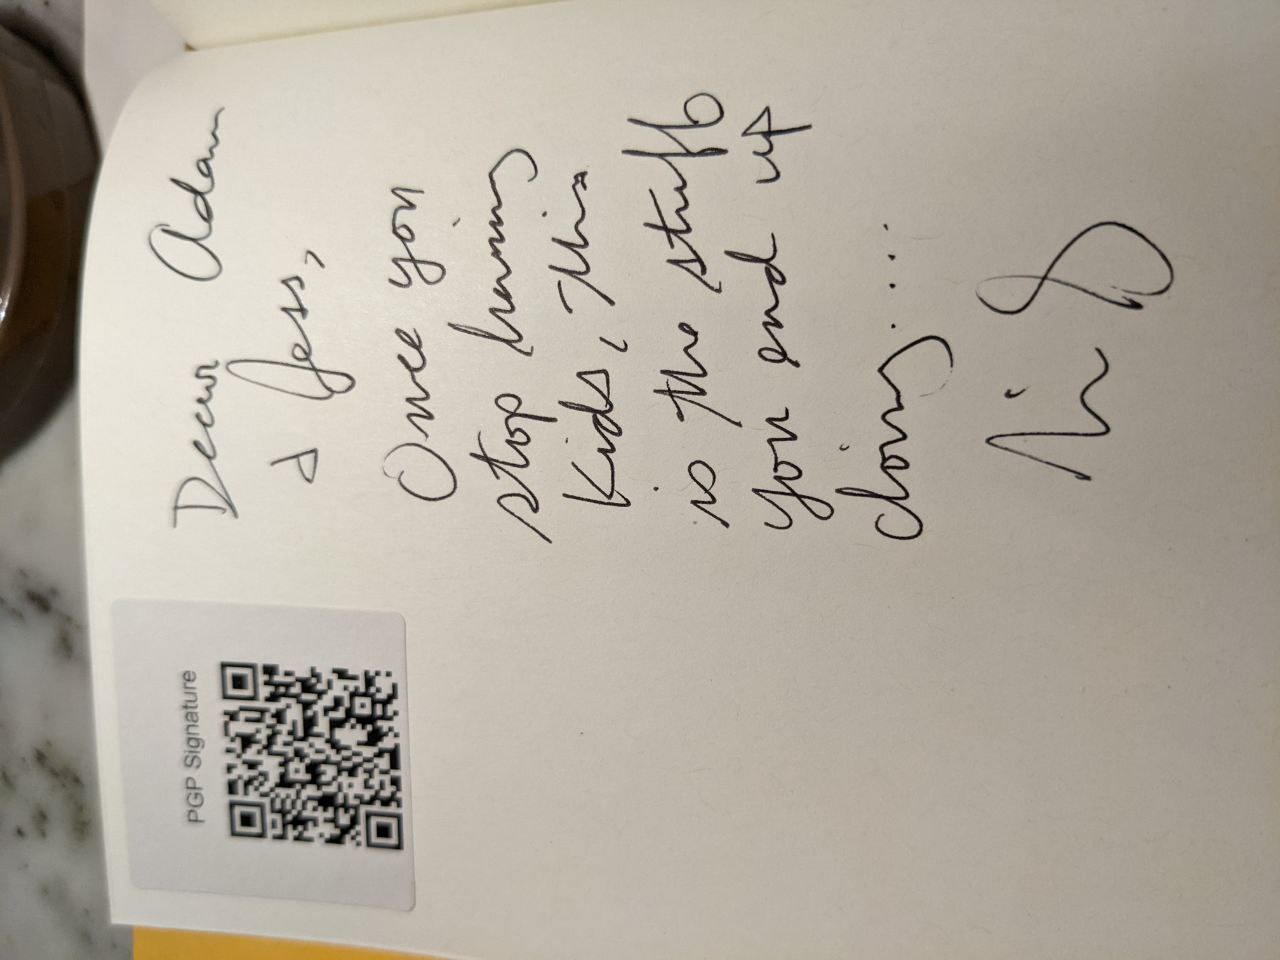 PGP Signature
Dear Adam
& Jess,
Once you
stop having
kids, this
is the stuff
you end up
doing...